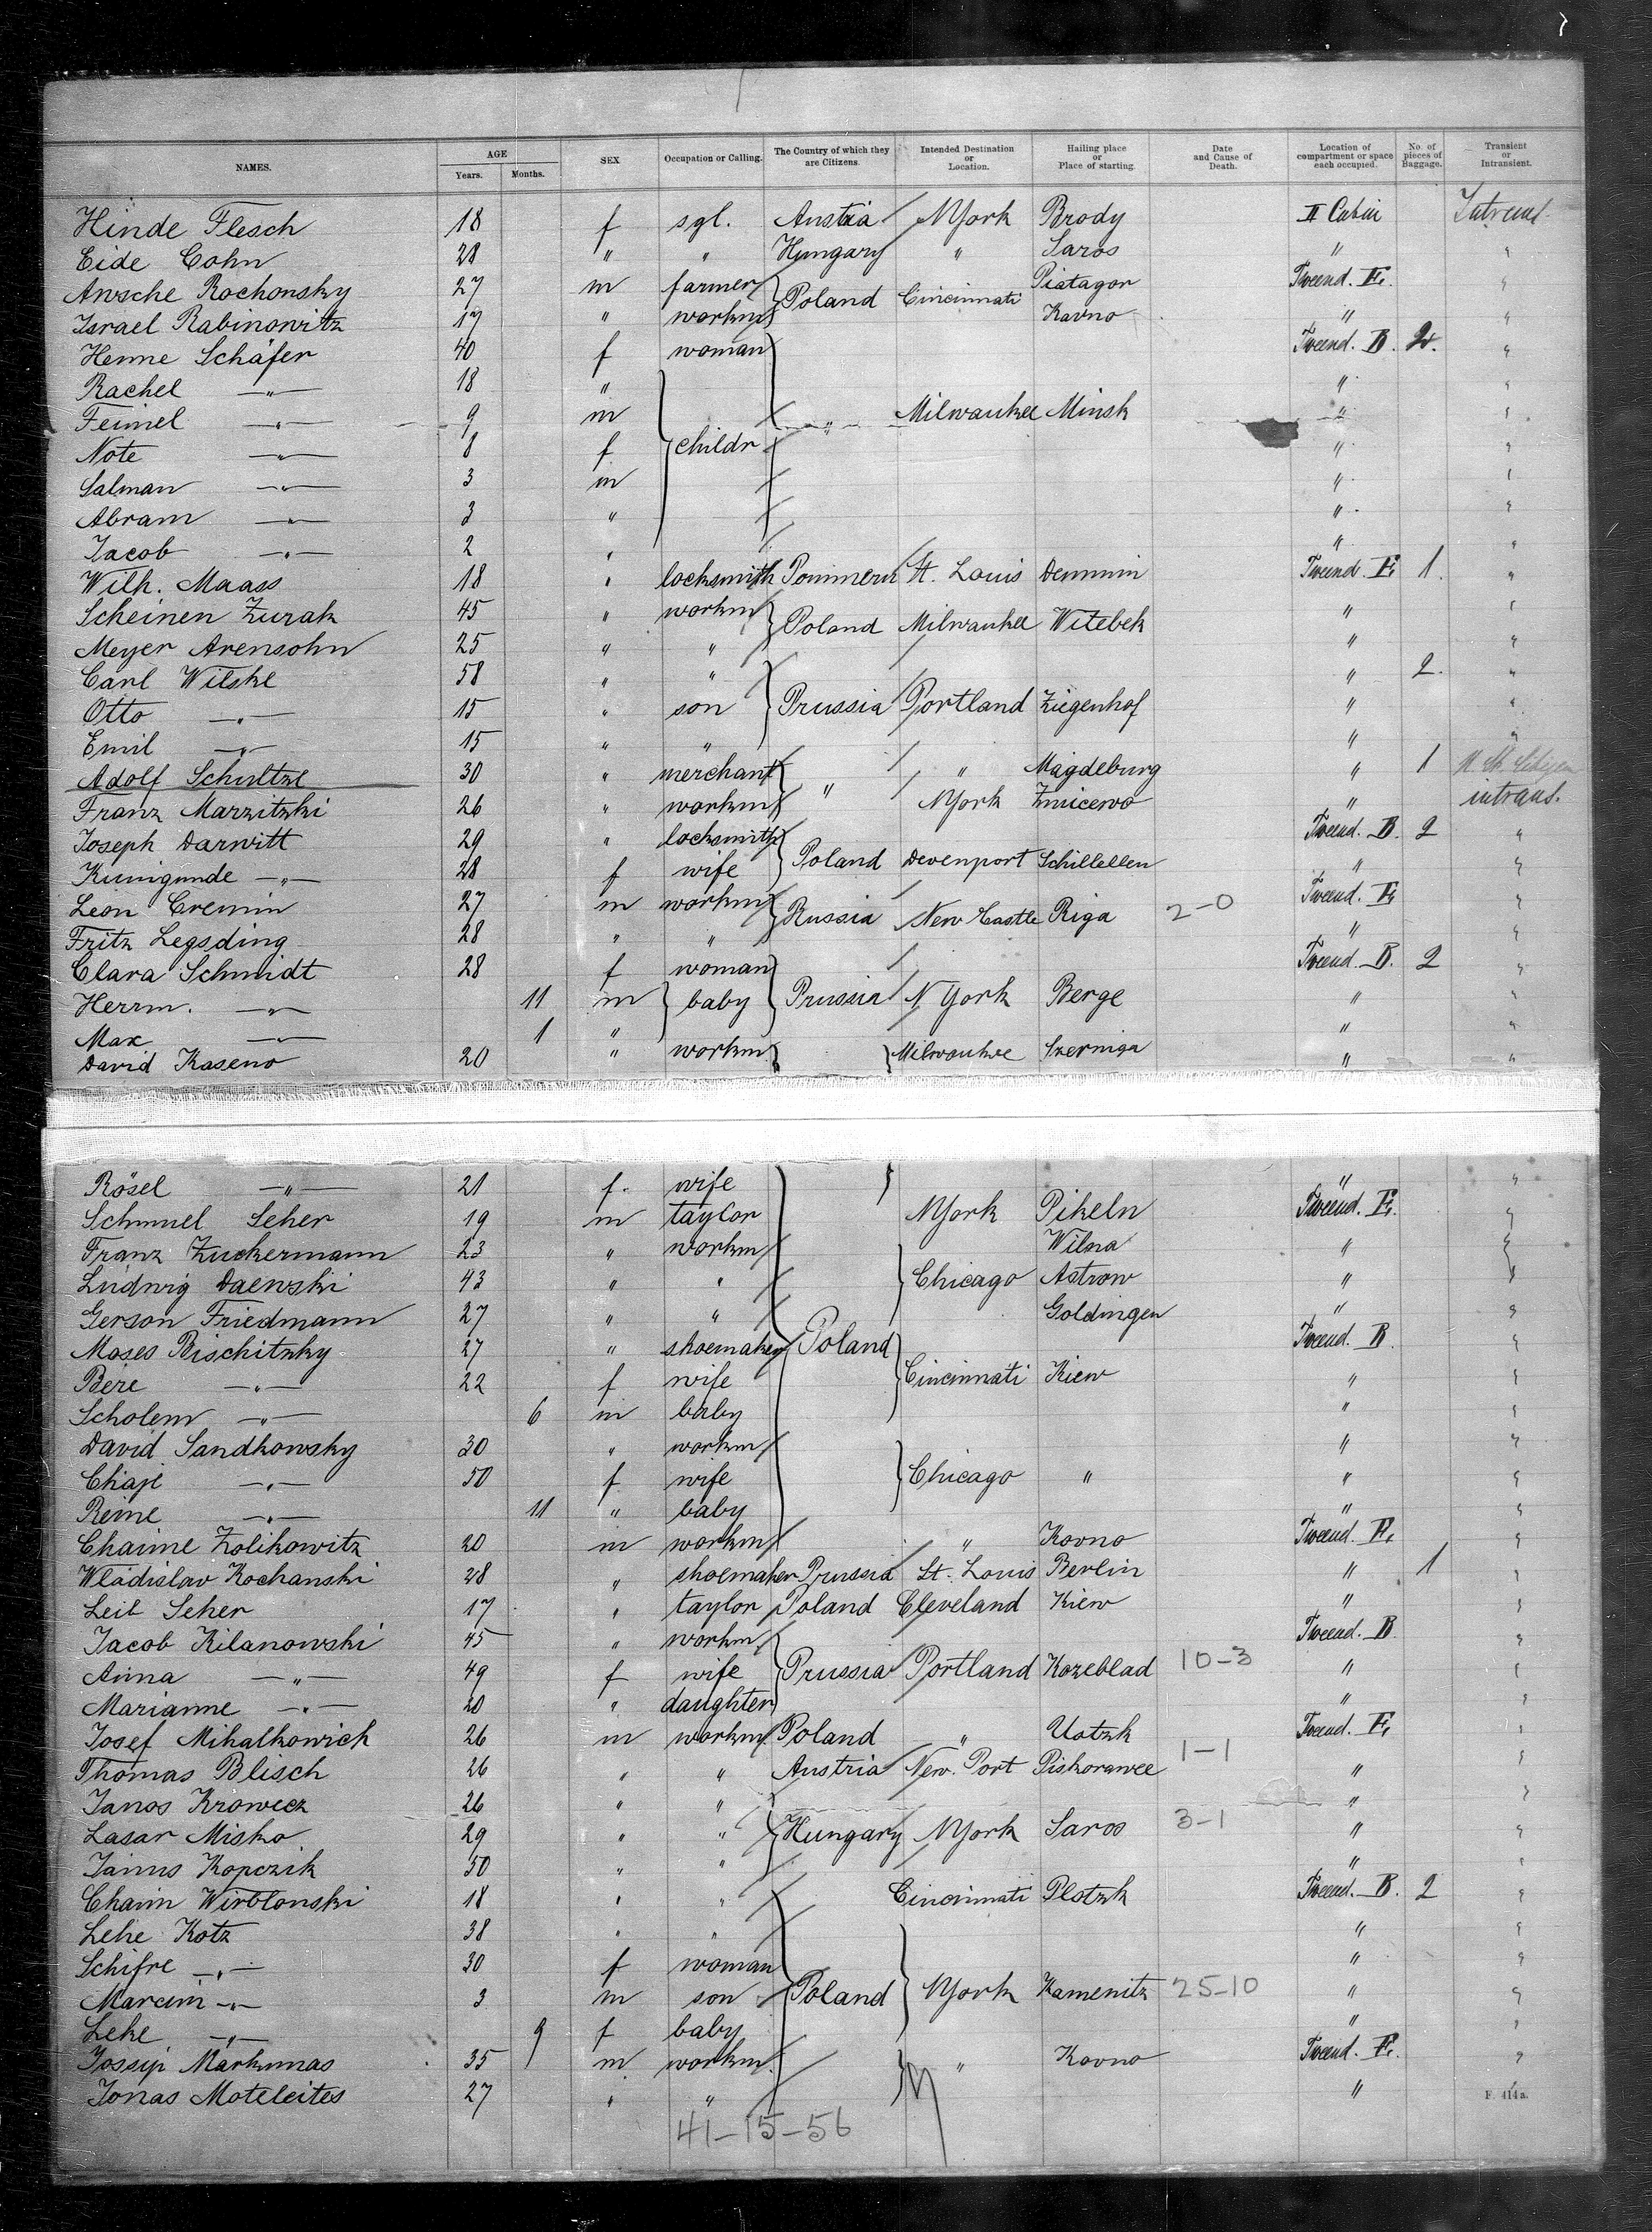 NAMES. AGE SEX Occupation or Calling. The Country of which they are Citizens. Intended Destination or Location. Hailing place or Place of starting. Date and Cause of Death. Location of compartment or space each occupied. No. of pieces of Baggage. Transient or Intransient.
Years. Months.
Hinde Flesch 18 f sgl. Austria NYork Brody II Cabin
Eide Cohn 28 " " Hungary " Saros "
Ansche Rochonsky 27 m farmer Poland Cincinnati Piatagor Tweend. E. "
Israel Rabinowitz 17 " workm Kovno " "
Henne Schäfer 40 f woman Tweend. B. 2. "
Rachel —"— 18 " " "
Feimel —"— 9 m " Milwaukee Minsk " "
Note —"— 8 f childr " "
Salman —"— 3 m " "
Abram —"— 3 " " "
Jacob —"— 2 " " "
Wilh. Maass 18 " locksmith Pommern St. Louis Demmin Tweend. E. 1. "
Scheinen Zurak 45 " workm Poland Milwaukee Witebek " "
Meyer Arensohn 25 " " " "
Carl Wilske 58 " " " 2. "
Otto —"— 15 " son Prussia Portland Ziegenhof " "
Emil —"— 15 " " " "
Adolf Schultze 30 " merchant " " Magdeburg " 1
Franz Marzitzki 26 " workm NYork Zmicewo " intrans.
Joseph Darwitt 29 " locksmith Poland Devenport Schillellen Tweend. B. 2 "
Kunigunde —"— 28 f wife " "
Leon Cremin 27 m workm Russia New Castle Riga 2-0 Tweend. E. "
Fritz Legsding 28 " " " "
Clara Schmidt 28 f woman Tweend. B. 2 "
Herrm. —"— 11 m baby Prussia N.York Berge " "
Max —"— 1 " " "
David Kaseno 20 " workm. Milwaukee Szerniga " "
Rösel —"— 21 f. wife " "
Schmuel Seher 19 m taylor NYork Pikeln Tweend. E. "
Franz Zuckermann 23 " workm Wilna " "
Ludwig Daenski 43 " " Chicago Astrow " "
Gerson Friedmann 27 " " Goldingen " "
Moses Bischitzky 27 " shoemaker Poland Tweend. B. "
Bere —"— 22 f wife Cincinnati Kiew " "
Scholem —"— 6 m baby " "
David Sandkowsky 30 " workm " "
Chaje —"— 50 f wife Chicago " " "
Reine —"— 11 " baby " "
Chaime Zolikowitz 20 m workm " Kovno Tweend. E. "
Wladislaw Kochanski 28 " shoemaker Prussia St. Louis Berlin " 1 "
Leib Seher 17 " taylor Poland Cleveland Kiew " "
Jacob Kilanowski 45 " workm. Tweend. B "
Anna —"— 49 f wife Prussia Portland Kozeblad 10-3 " "
Marianne —"— 20 " daughter " "
Josef Mihalkowich 26 m workm Poland " Uotzk Tweend. E. "
Thomas Blisch 26 " " Austria New. Port Piskorawee 1-1 " "
Janos Krowecz 26 " " " "
Lasar Misko 29 " " Hungary NYork Saros 3-1 " "
Janus Kopczik 50 " " " "
Chaim Wirblonski 18 " " Cincinnati Plotzk Tweend. B. 2 "
Lehe Kotz 38 " " " "
Schifre —"— 30 f woman " "
Marcim —"— 3 m son Poland NYork Kamenitz 25-10 " "
Leke —"— 9 f baby " "
Jossip Markunas 35 m workm. " Kovno Tweend. E. "
Jonas Moteleites 27 " " "
F. 414a.
41-15-56